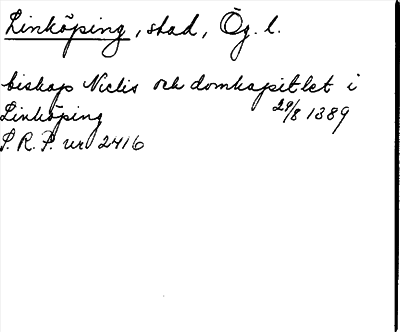 Linköping, stad, Ög. l.
biskop Niclis och domkapitlet i
Linköping 29/8 1389
S.R.P. nr 2416